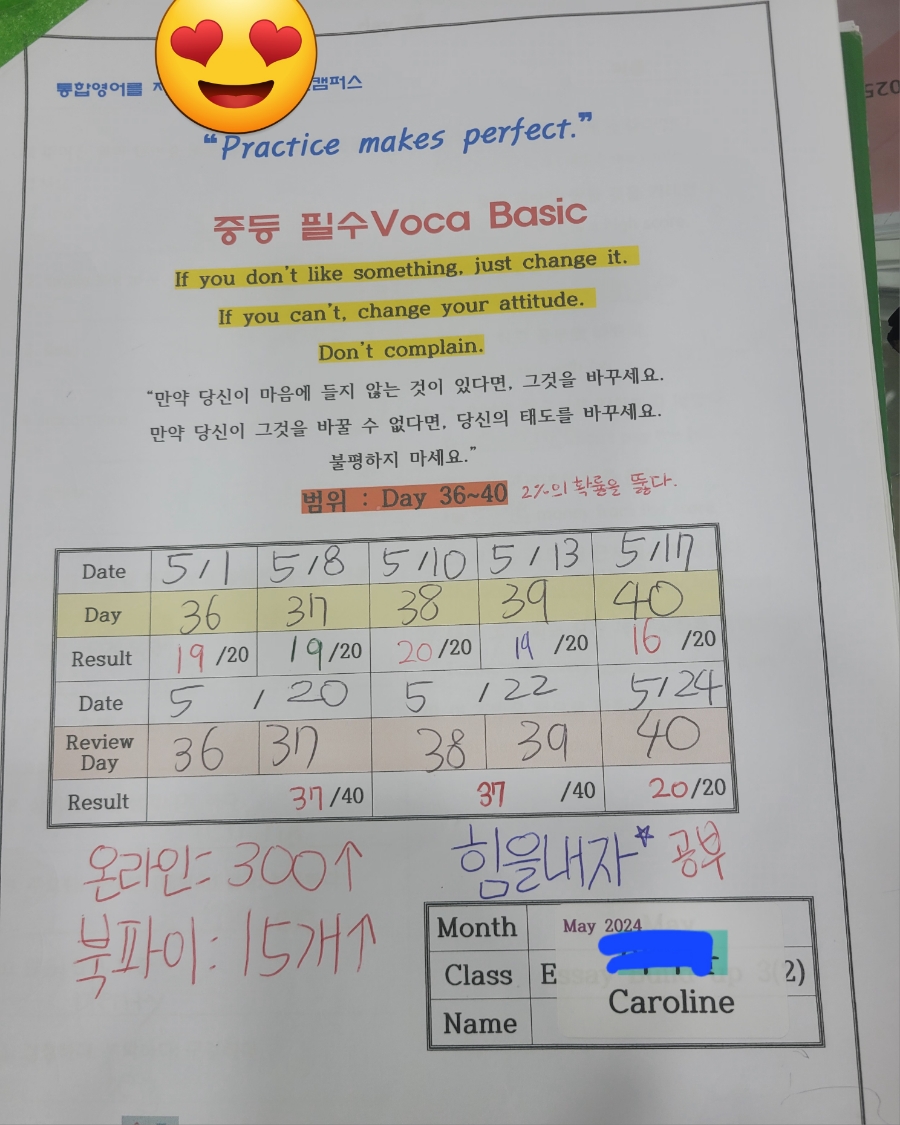 통합영어를 캠퍼스
“Practice makes perfect.”
중등 필수Voca Basic
If you don't like something, just change it.
If you can't, change your attitude.
Don't complain.
“만약 당신이 마음에 들지 않는 것이 있다면, 그것을 바꾸세요.
만약 당신이 그것을 바꿀 수 없다면, 당신의 태도를 바꾸세요.
불평하지 마세요.”
범위 : Day 36~40 2%의 확률을 뚫다.
Date 5/1 5/8 5/10 5/13 5/17
Day 36 37 38 39 40
Result 19/20 19/20 20/20 19/20 16/20
Date 5/20 5/22 5/24
Review Day 36 37 38 39 40
Result 37/40 37/40 20/20
온라인: 300↑
힘을내자☆ 공부
북파이: 15개↑
Month May 2024
Class E 2)
Name Caroline